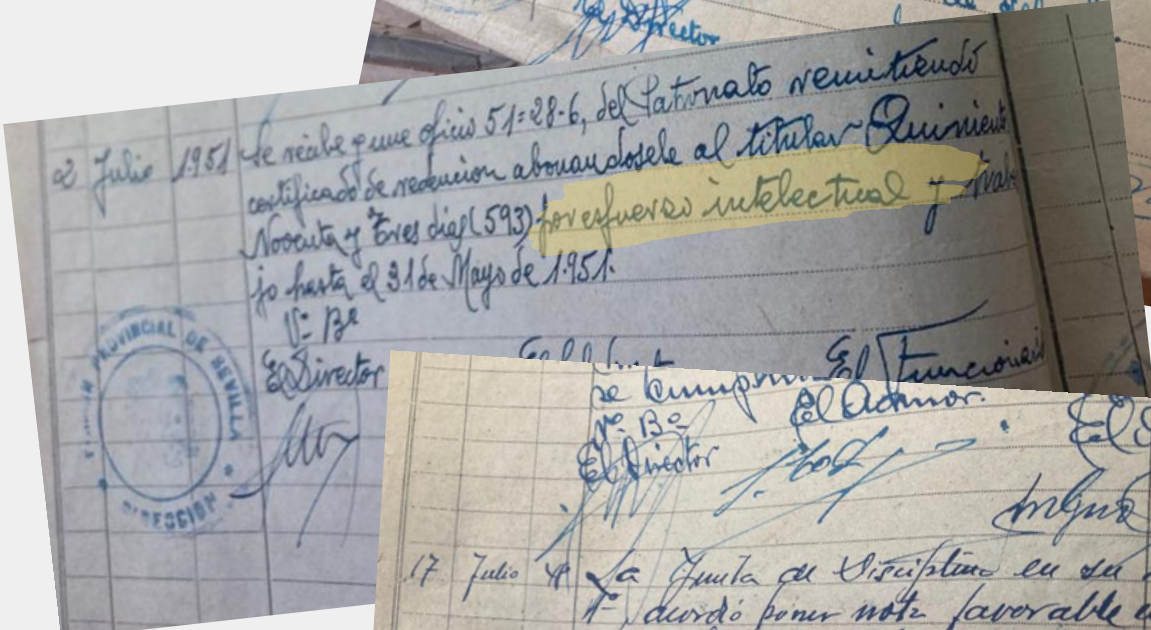 Director
2 Julio 1951 Se recibe qune oficio 51=28-6, del Patronato remitiendo
certificado de redencion abonandosele al titular Quinient
Noventa y Tres dias (593) por esfuerzo intelectual y traba
jo hasta el 31 de Mayo de 1.951.
Vº Bº
El Director
El Funcionari
PROVINCIAL DE SEVILLA
DIRECCION
se cump
Vº Bº
El Admor.
El Director
17 Julio 48 La Junta de Disciplina en su
1ª acordó poner nota favorable